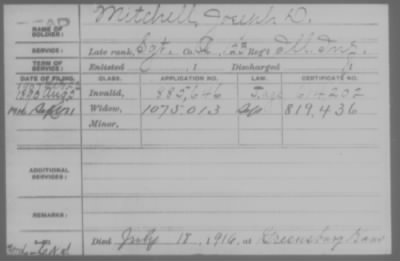 NAME OF SOLDIER: Mitchell, Joseph D.
SERVICE: Late rank, Sgt. Co. Reg't Ill. Inf.
TERM OF SERVICE: Enlisted , 1 Discharged , 1
DATE OF FILING. CLASS. APPLICATION NO. LAW. CERTIFICATE NO.
Invalid, 885,646
1916 Widow, 1075013 819,436
Minor,
ADDITIONAL SERVICES:
REMARKS:
Died July 18, 1916, at Greensburg Kans